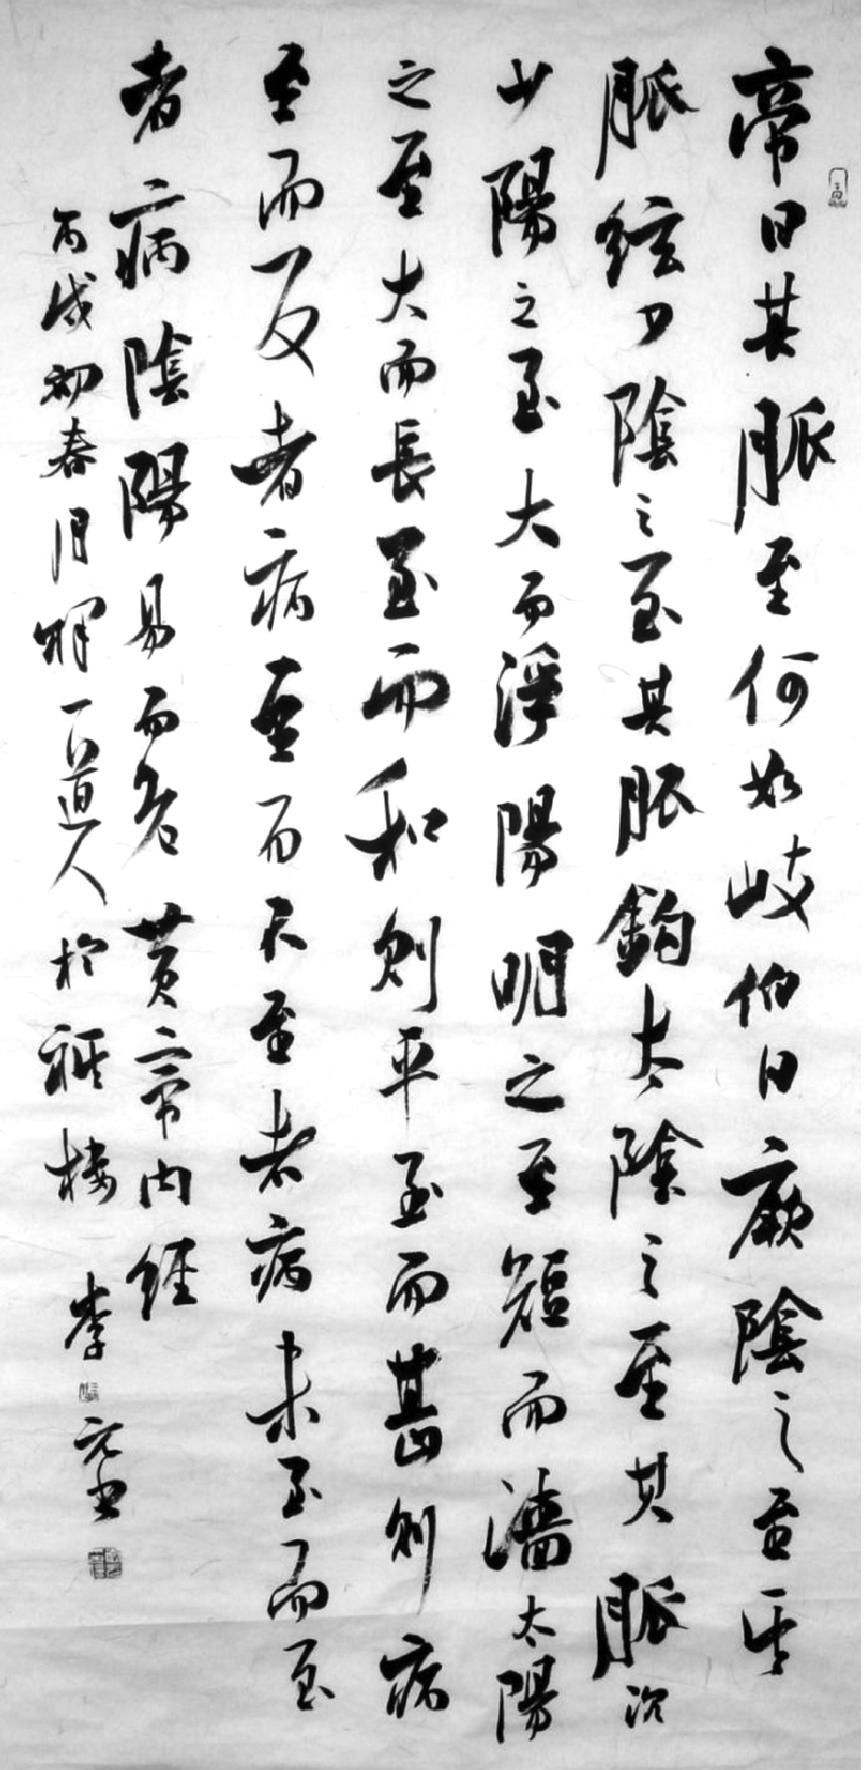 帝曰其脈至何如岐伯曰厥陰之至其
脈絃少陰之至其脈鈎太陰之至其脈沉
少陽之至大而浮陽明之至短而濇太陽
之至大而長至而和則平至而甚則病
至而反者病至而不至者病未至而至
者病陰陽易而危黄帝内經
丙戌初春月 一道人於 樓 李 書